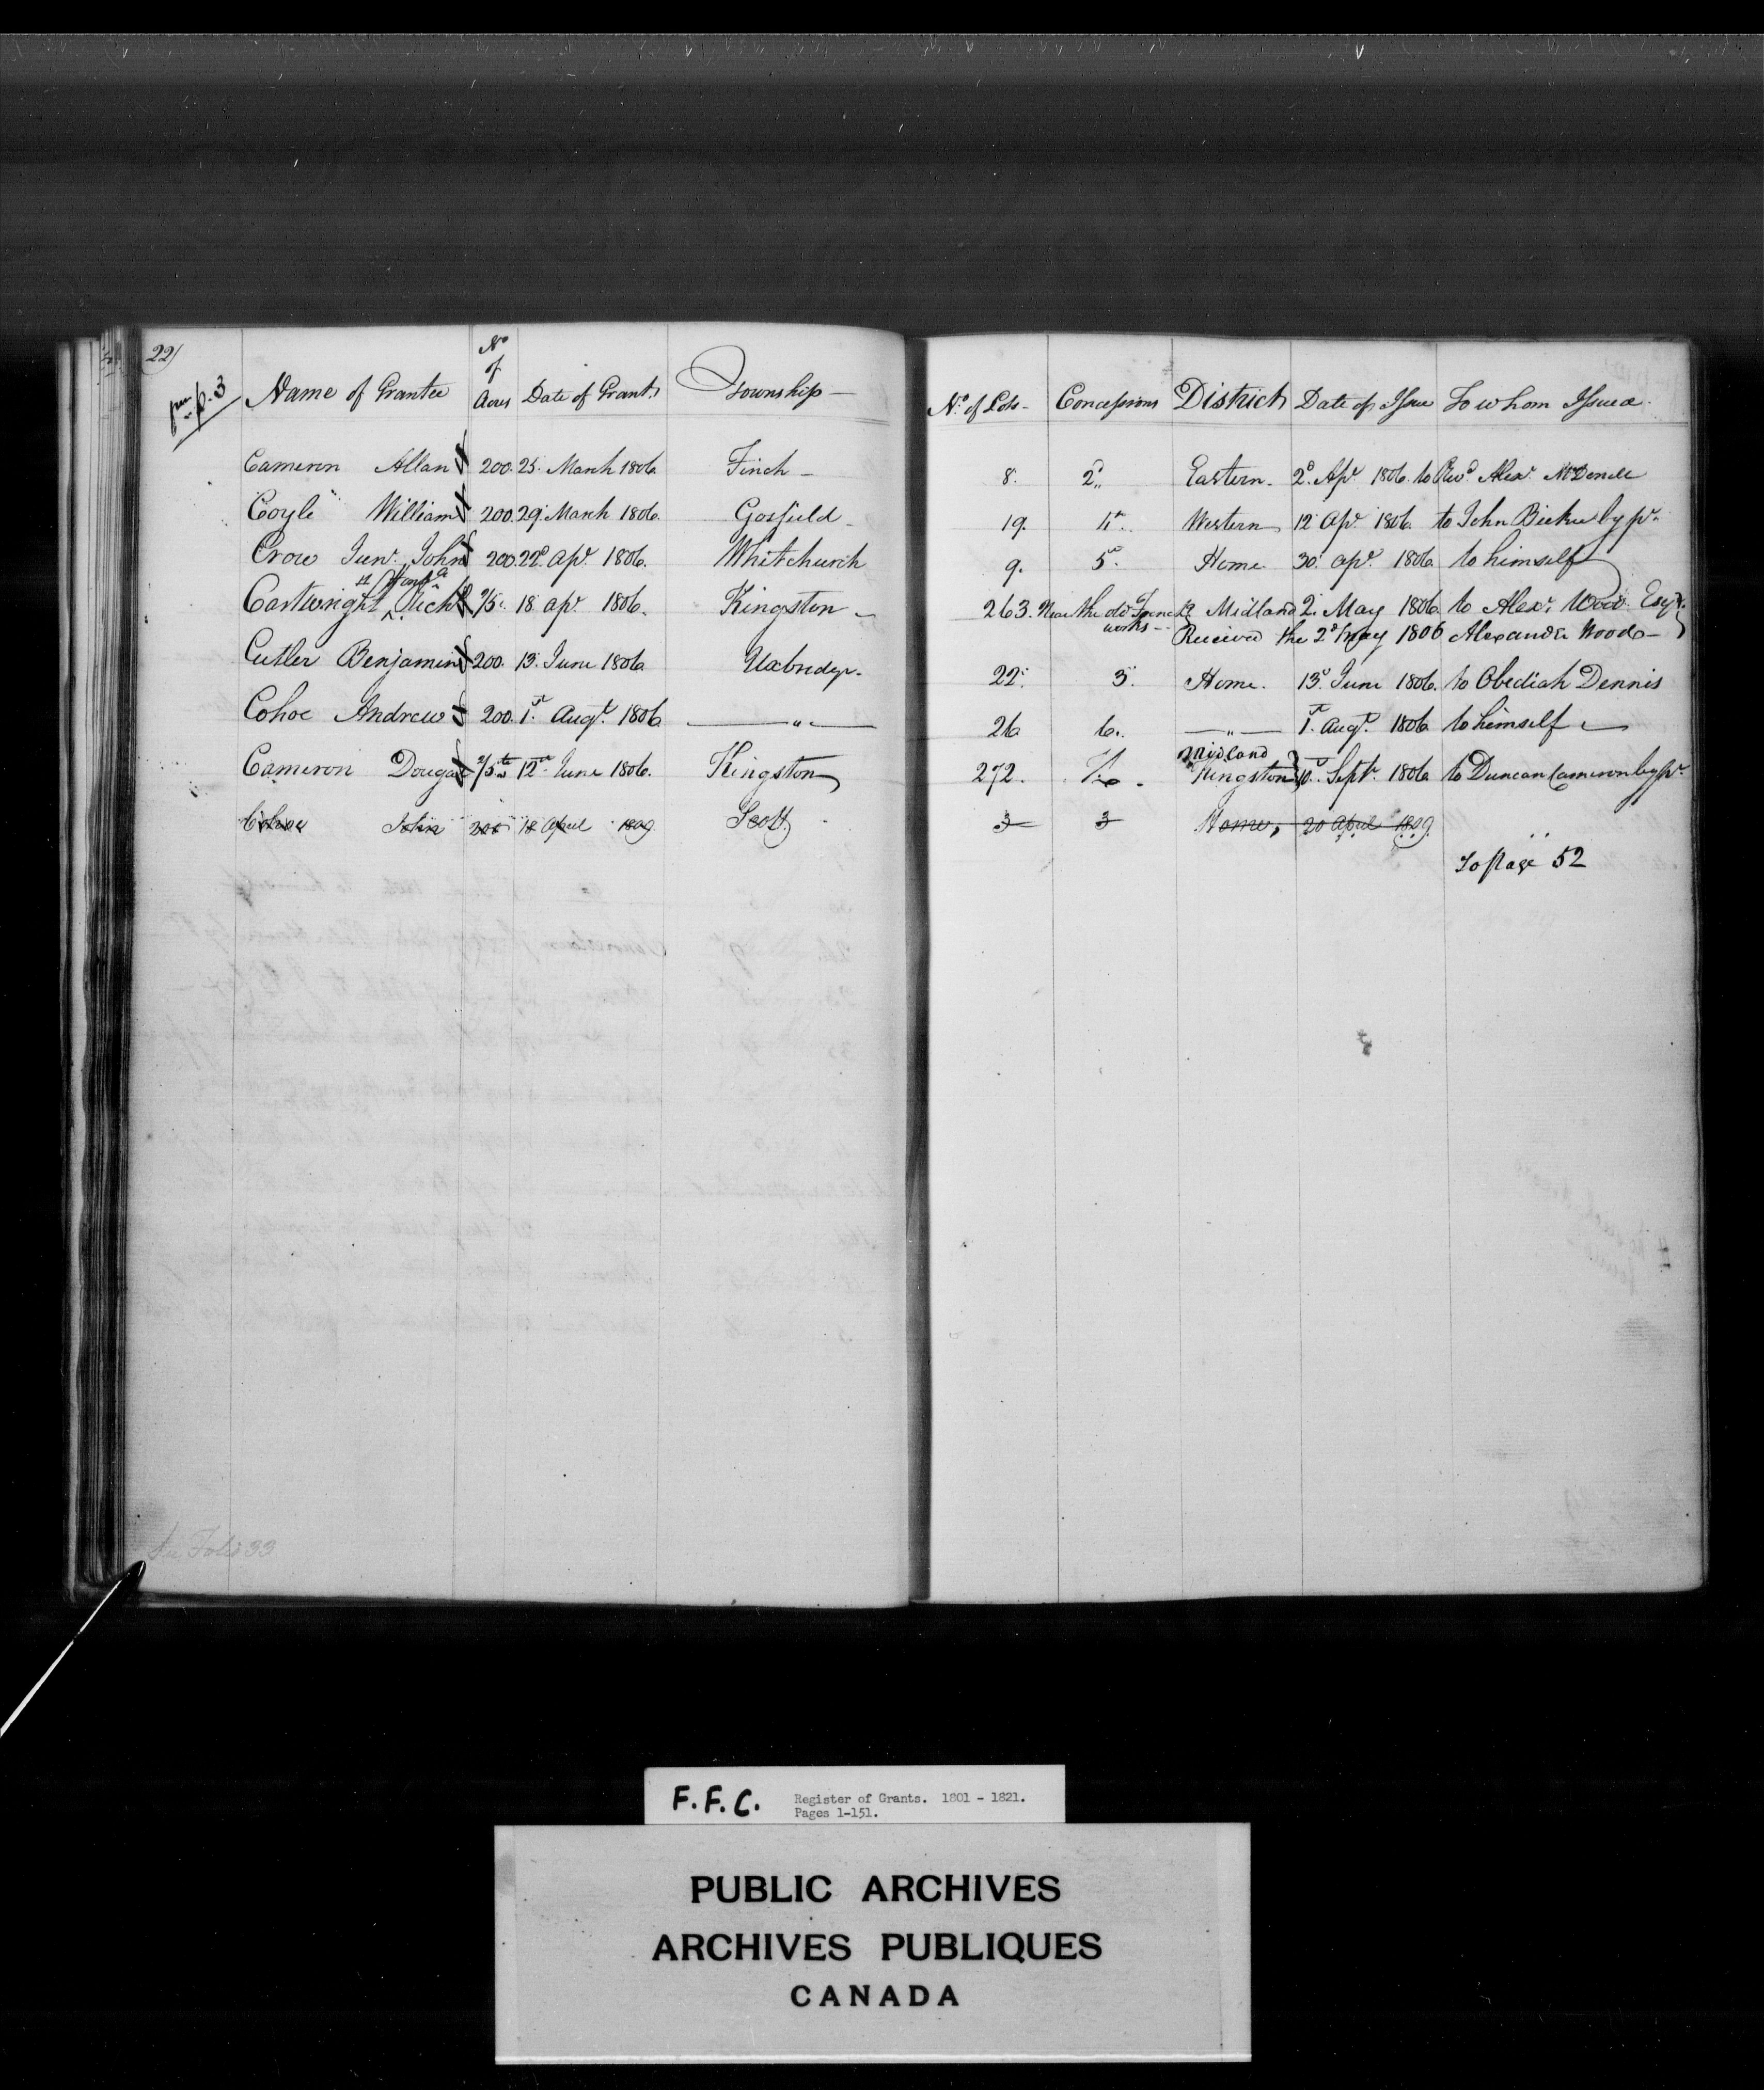 22/
p. 3
Name of Grantee | No of Acres | Date of Grant | Township | No. of Lots | Concessions | District | Date of Issue | To whom Issued
Cameron Allan | 200. | 25. March 1806 | Finch | 8. | 2d | Eastern. | 2d. Apr. 1806. | to Revd. Alexr. McDonell
Coyle William | 200. | 29. March 1806. | Gosfield | 19. | | Western | 12 Apr. 1806. | to John by pr.
Crow Junr. John | 200. | 22d. apr. 1806. | Whitchurch | 9. | 5. | Home | 30. apr. 1806. | to himself
Cartwright Richd. | 2/5. | 18 apr. 1806. | Kingston | 263. | Near the old French works | Midland | 2. May 1806 | to Alexr. Wood Esqr.
Received the 2d May 1806 Alexander Wood
Cutler Benjamin | 200. | 13. June 1806 | Uxbridge. | 22. | 3. | Home. | 13. June 1806. | to Obediah Dennis
Cohoe Andrew | 200. | 1st. Augt. 1806 | " | 26 | 6. | " | 1st. Augt. 1806 | to himself
Cameron Dougal | 2/5ths | 12th. June 1806. | Kingston | 272. | | Midland Kingston | 10. Septr. 1806 | to Duncan Cameron by pr.
Cohoe John | 200 | 18 April 1809 | Scott | 3 | 3 | Home, | 20 April 1809.
To Page 52
See Folio 33
F.F.C. Register of Grants. 1801 - 1821.
Pages 1-151.
PUBLIC ARCHIVES
ARCHIVES PUBLIQUES
CANADA